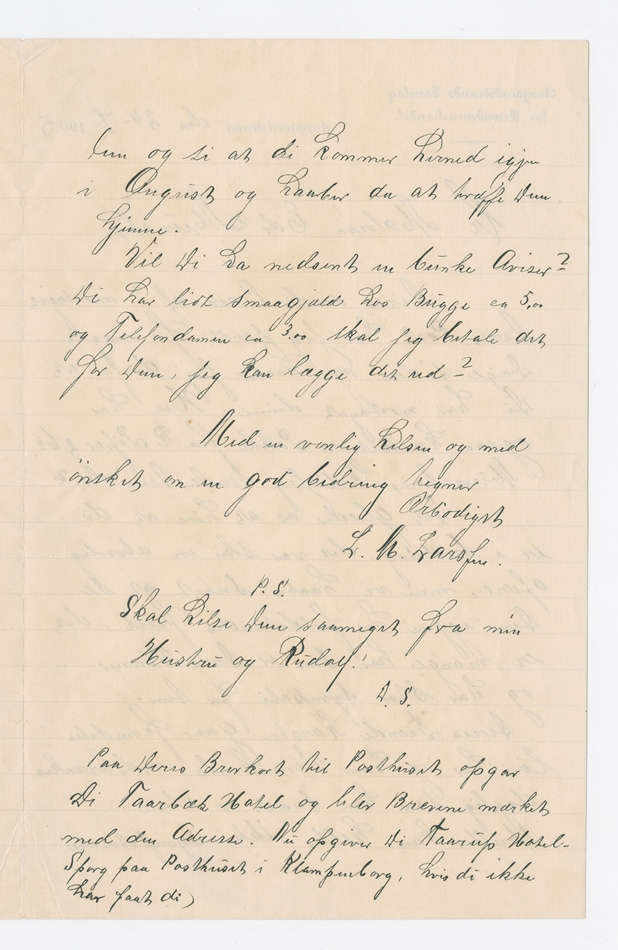 dem og si at di kommer herned igjen
i August og haaber da at treffe Dem
hjemme.
Vil Di ha nedsent en bunke Aviser?
Di har lidt smaagjæld hos Bugge ca 5,00
og Telefondamen ca 3.00 skal jeg betale det
for Dem, jeg kan lægge det ud?
Med en venlig hilsen og med
ønsket om en god bedring tegner
Ærbødigst
L. M. Larsen.
P. S.
Skal hilse Dem saameget fra min
Hustru og Rudolf!
D. S.
Paa Deres Brevkort til Posthuset opgav
Di Taarbæk Hotel og blev Brevene mærket
med den Adresse. Nu opgiver Di Taarup Hotel-
Spørg paa Posthuset i Klampenborg, hvis di ikke
har faat di)